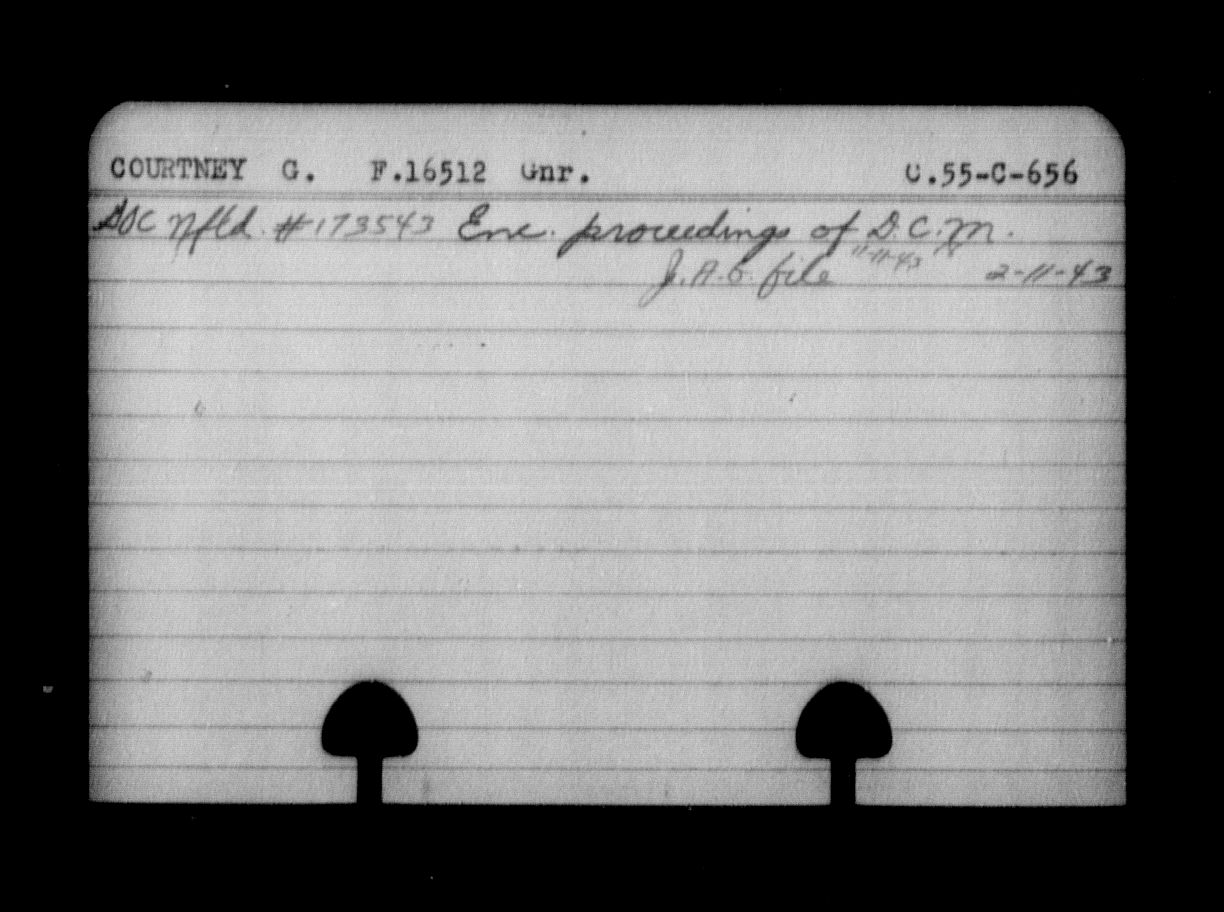 COURTNEY G. F.16512 Gnr. C.55-C-656
DOC Nfld. #173543 Enc. proceedings of D.C.M.
J.A.G. file 11-11-43 2-11-43